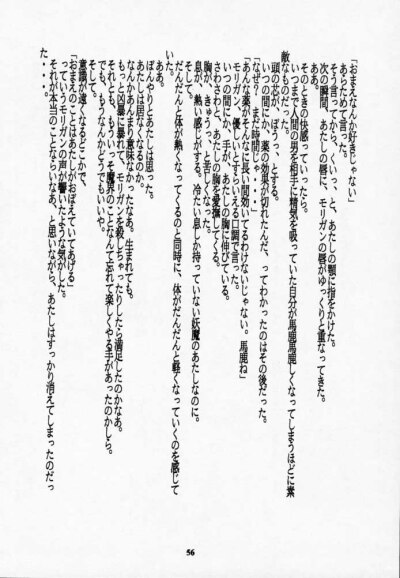 「おまえなんか好きじゃない」
あらためて言った。
そう言ってから、くいっ、と、あたしの顎に指をかけた。
次の瞬間、あたしの唇に、モリガンの唇がゆっくりと重なってきた。
そのときの快感っていったら。
いつまで人間の男を相手に精気を吸っていた自分が馬鹿馬鹿しくなってしまうほどに素
敵なものだった。
頭の芯が、ぼうっ、とする。
いつの間にか、薬の効果が切れたんだ、ってわかったのはその後だった。
「なぜ？　まだ時間が」
「あんな薬がそんなに長い間効いてるわけないじゃない。馬鹿ね」
モリガン、優しいとすらいえる口調で言った。
いつの間に、手が、あたしの胸に伸びている。
さわさわと、あたしの胸を愛撫してくる。
胸が、きゅうっ、と苦しくなった。
息が、熱い感じがする。冷たい息しか持っていない妖魔のあたしなのに。
そして。
だんだんと体が熱くなってくるのと同時に、体がだんだんと軽くなっていくのを感じて
いた。
ああ。
ぼんやりとあたしは思った。
あたしは居なくなるのか。
なんかあんまり意味なかったなあ。生まれても。
もっと凶暴に暴れて、モリガンを殺しちゃったりしたら満足したのかなあ。
それとも、もういっそ魔界のことなんて忘れて楽しくやる手があったのかしら。
でも、もうなんか、どうでもいいや。
そして。
意識が遠くなるどこかで、
「おまえのことはあたしがおぼえていてあげる」
っていうモリガンの声が響いたような気がした。
それが本当のことならいいなあ、と思いながら、あたしはすっかり消えてしまったのだっ
た・・・。
56